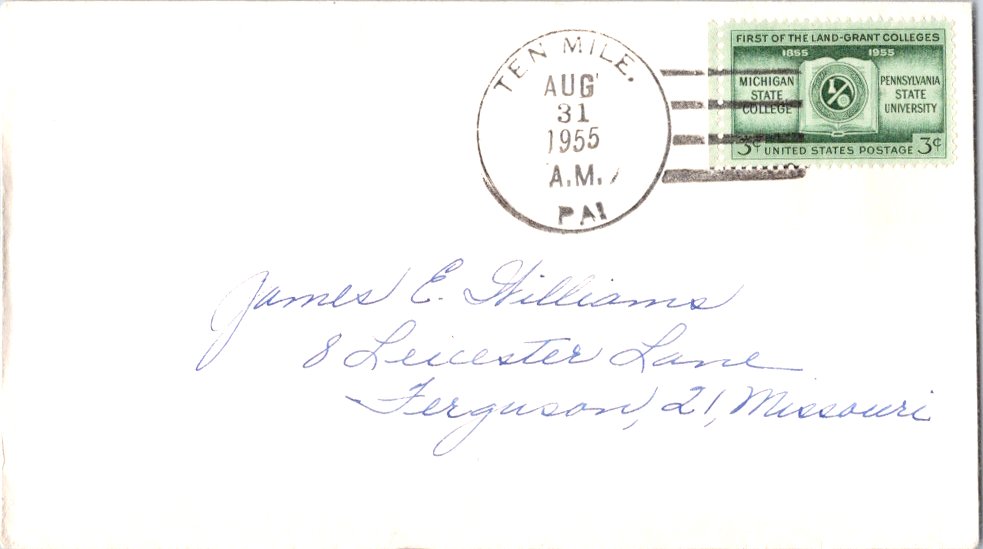 TEN MILE.
AUG
31
1955
A.M.
PA
FIRST OF THE LAND-GRANT COLLEGES
1855 1955
MICHIGAN
STATE
COLLEGE
PENNSYLVANIA
STATE
UNIVERSITY
3¢ UNITED STATES POSTAGE 3¢
James E. Williams
8 Leicester Lane
Ferguson, 21, Missouri